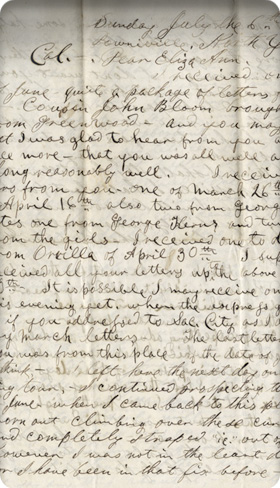 Sunday July the 6
Cal. - Dear Eliza Ann.
received
June quite a package of letters
Cousin John Bloom broug
om Greenwood - and you may
t I was glad to hear from you
e more - that you was all well
ong reasonably well. I receiv
rs from you - one of March 26
April 16th also two from Georg
tes one from George Kerns and tw
om the girls - I received one to
om Orvilla of April 30th I
eived all your letters up the above
It is possible I may receive on
is evening yet - when the express
if you addressed to Sac City
y March letters The last letter
ou was from this place the date
think - I left here the next day on
I continued prospecting
June - when I came back to this
orn out climbing over the
nd completely strapped out
however I was not in the least
or I have been in that fix before